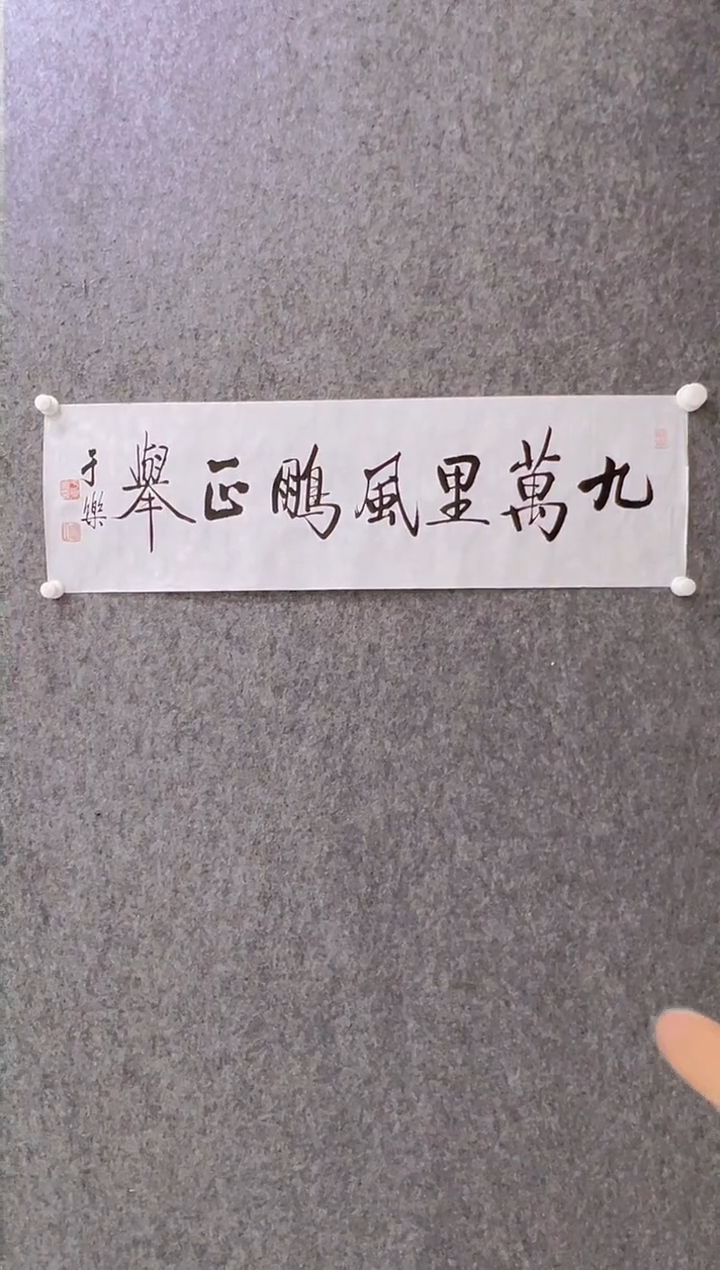 九萬里風鵬正舉
于樂